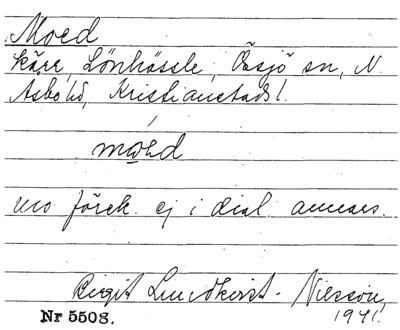 Moed
kärr, Lönhässle, Össjö sn, N.
Åsbo hd, Kristianstads l.
moed
mo förek. ej i dial. annars.
Birgit Lindkvist-Nilsson,
Nr 5508. 1941.